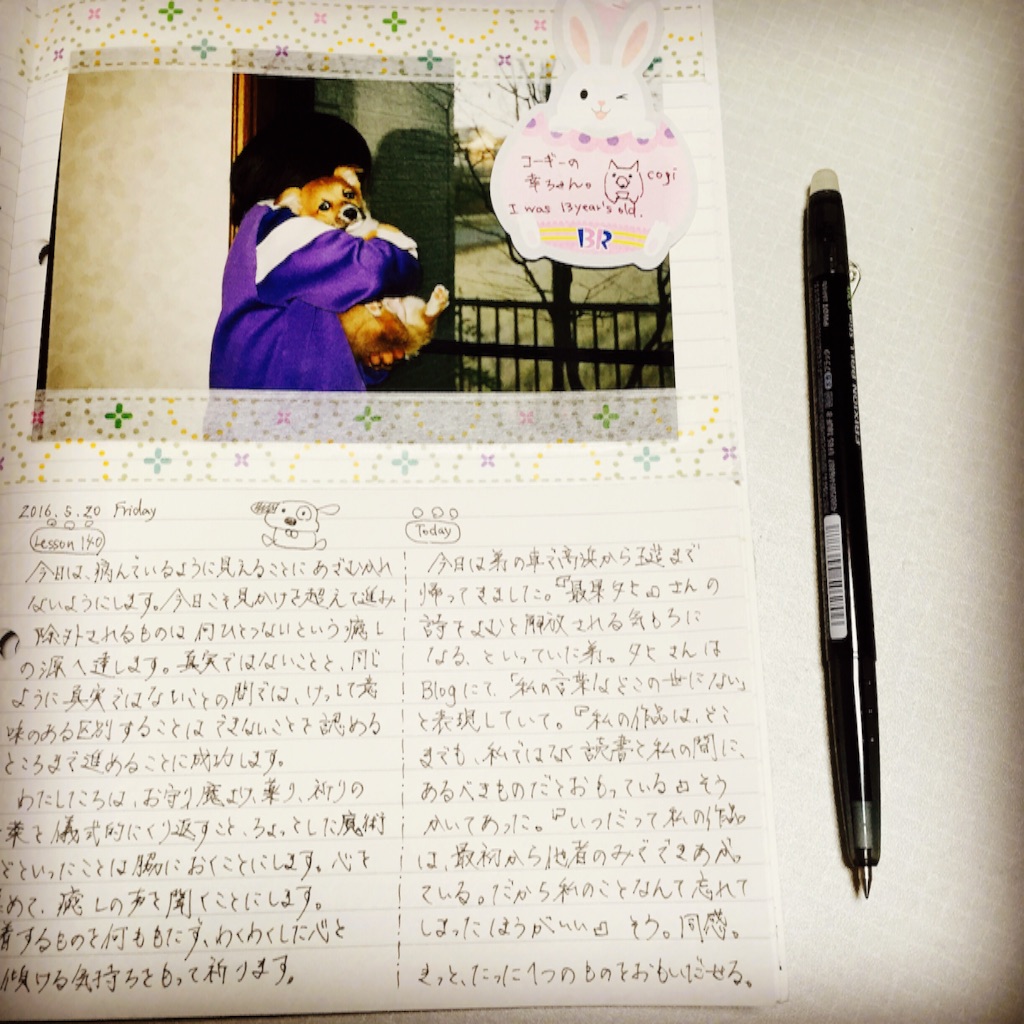 コーギーの
幸ちゃん。
cogi
I was 13year's old.
BR
2016.5.20 Friday
Lesson 140
今日は、病んでいるように見えることにあざむかれ
ないようにします。今日こそ見かけを超えて進み
除外されるものは何ひとつないという癒し
の源へ達します。真実ではないことと、同じ
ように真実ではないことの間では、けっして意
味のある区別することはできないことを認める
ところまで進めることに成功します。
わたしたちは、お守り、魔よけ、薬り、祈りの
葉を儀式的にくり返すこと、ちょっとした魔術
どといったことは脇におくことにします。心を
めて、癒しの声を聞くことにします。
着するものを何ももたず、わくわくした心と
傾ける気持ちをもって祈ります。
Today
今日は弟の車で高浜から玉造まで
帰ってきました。『最果タヒ』さんの
詩をよむと解放される気もちに
なる、といっていた弟。タヒさんは
Blogにて、「私の言葉などこの世にない」
と表現していて。『私の作品は、どこ
までも、私ではなく読書と私の間に、
あるべきものだとおもっている』そう
かいてあった。『いつだって私の作品
は、最初から他者のみでできあがっ
ている。だから私のことなんて忘れて
しまったほうがいい』そう。同感。
きっと、たった1つのものをおもいだせる。
FRIXION BALL